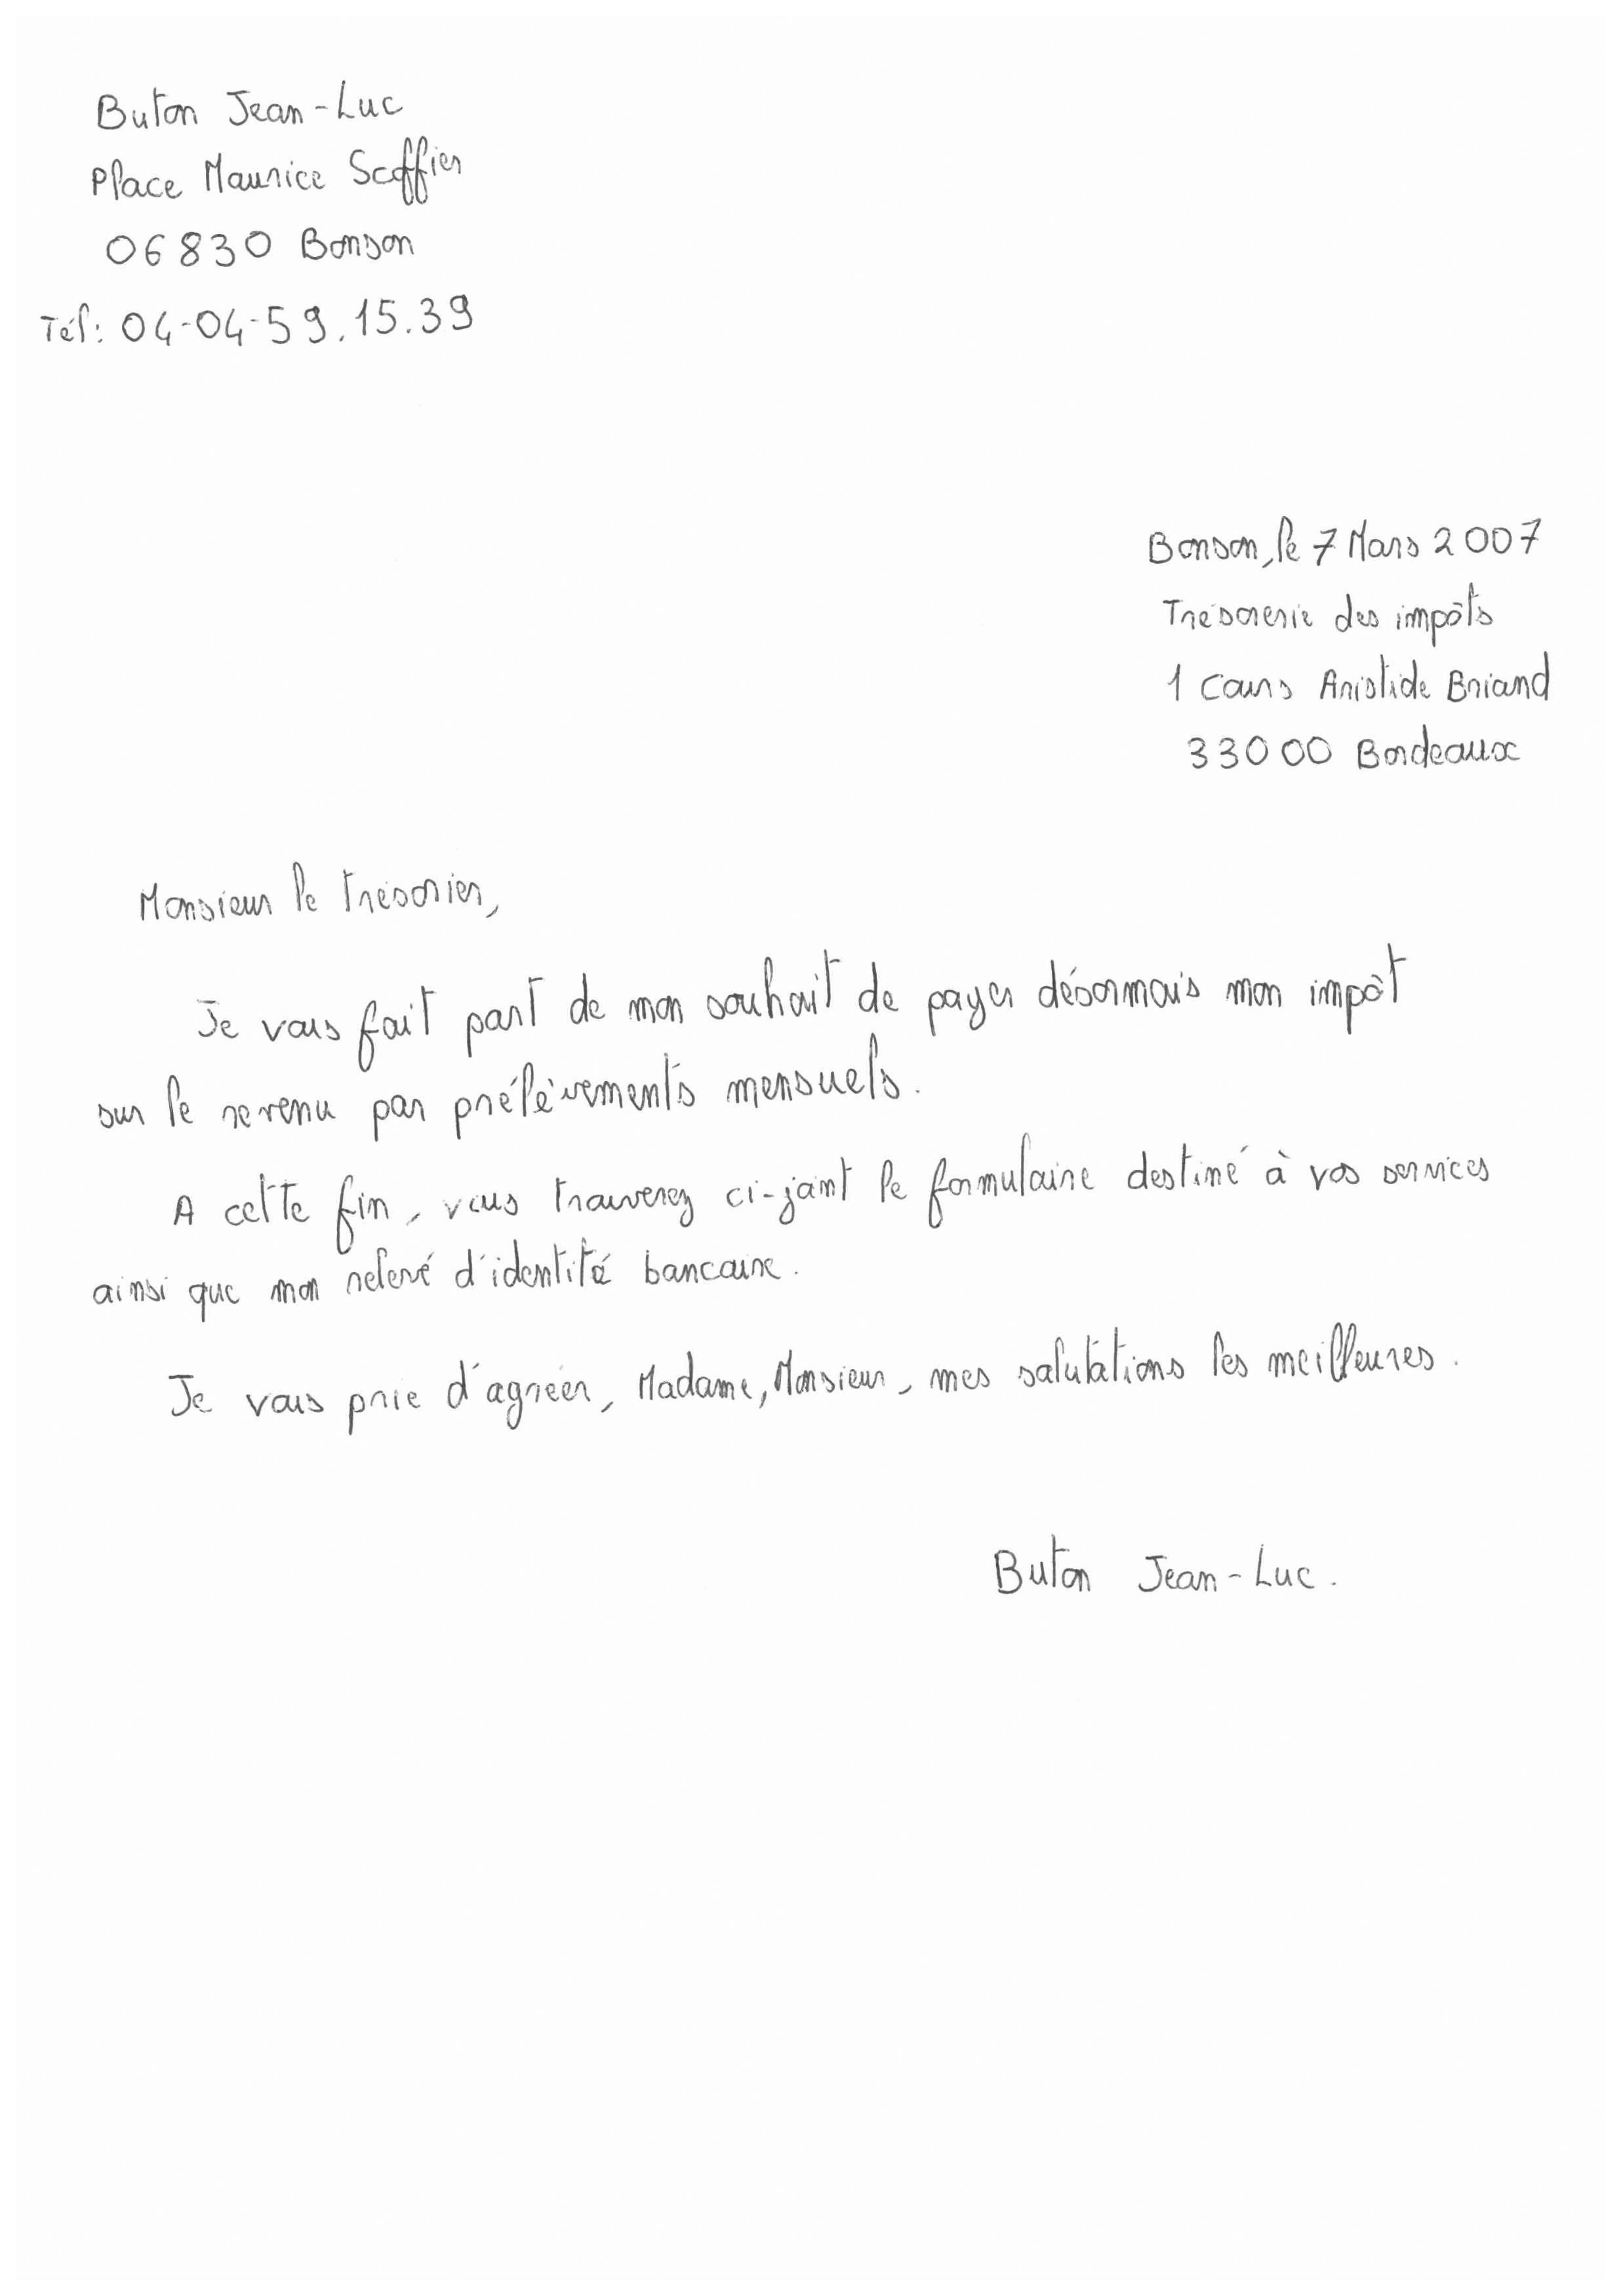 Buton Jean-Luc
Place Maurice Scoffier
06830 Bonson
Tél: 04-04-59.15.39
Bonson, le 7 Mars 2007
Trésorerie des impôts
1 Cours Aristide Briand
33000 Bordeaux
Monsieur le trésorier,
Je vous fait part de mon souhait de payer désormais mon impôt
sur le revenu par prélèvements mensuels.
A cette fin, vous trouverez ci-joint le formulaire destiné à vos services
ainsi que mon relevé d'identité bancaire.
Je vous prie d'agréer, Madame, Monsieur, mes salutations les meilleures.
Buton Jean-Luc.